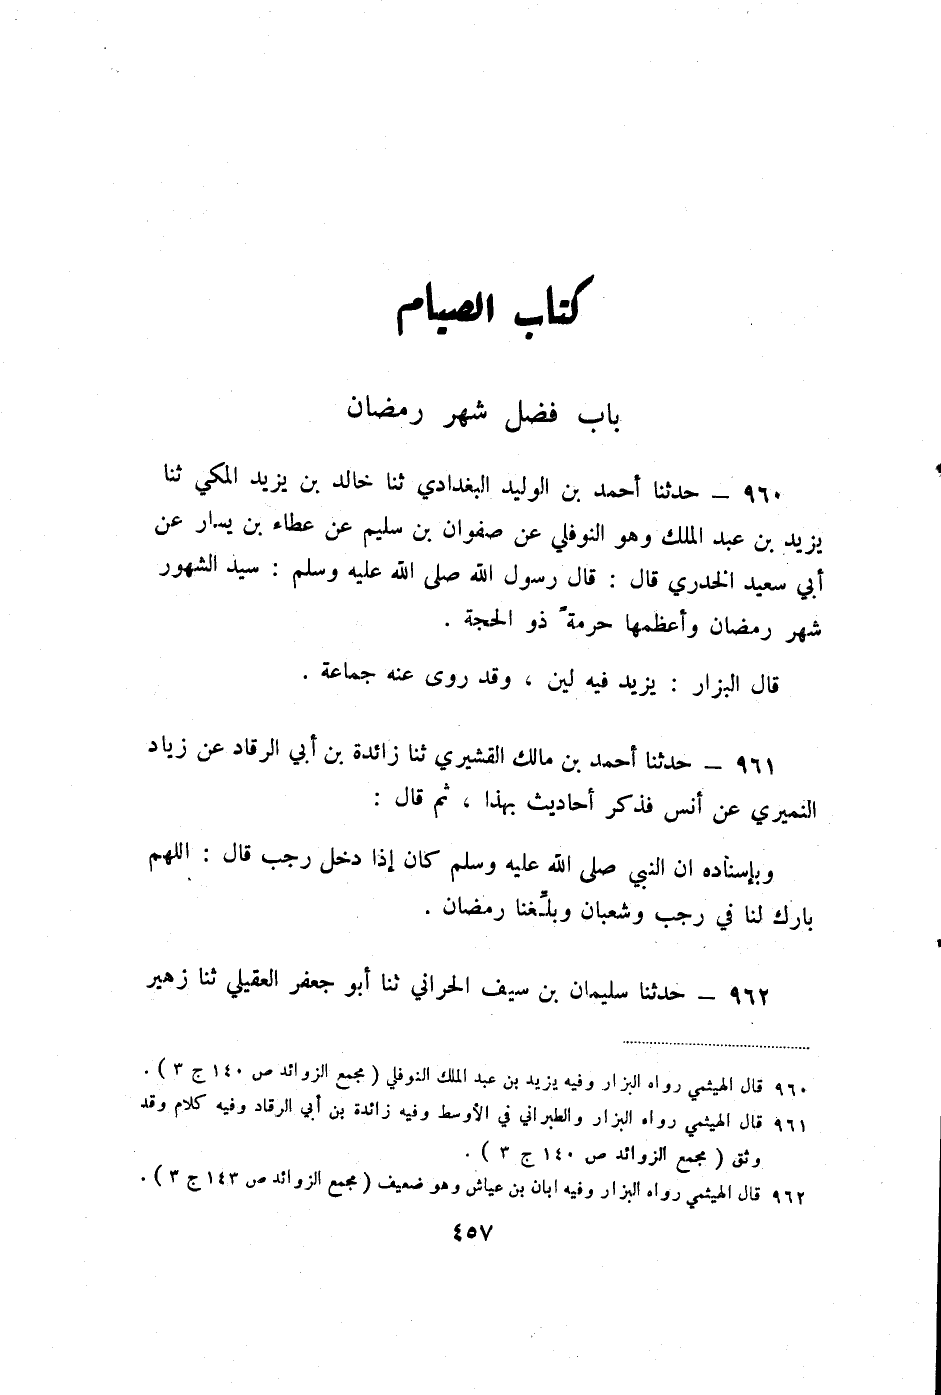 كتاب الصيام
باب فضل شهر رمضان
٩٦٠ – حدثنا أحمد بن الوليد البغدادي ثنا خالد بن يزيد المكي ثنا
يزيد بن عبد الملك وهو النوفلي عن صفوان بن سليم عن عطاء بن يسار عن
أبي سعيد الخدري قال : قال رسول الله صلى الله عليه وسلم : سيد الشهور
شهر رمضان وأعظمها حرمةً ذو الحجة .
قال البزار : يزيد فيه لين ، وقد روى عنه جماعة .
٩٦١ – حدثنا أحمد بن مالك القشيري ثنا زائدة بن أبي الرقاد عن زياد
النميري عن أنس فذكر أحاديث بهذا ، ثم قال :
وبإسناده ان النبي صلى الله عليه وسلم كان إذا دخل رجب قال : اللهم
بارك لنا في رجب وشعبان وبلّغنا رمضان .
٩٦٢ – حدثنا سليمان بن سيف الحراني ثنا أبو جعفر العقيلي ثنا زهير
٩٦٠ قال الهيثمي رواه البزار وفيه يزيد بن عبد الملك النوفلي ( مجمع الزوائد ص ١٤٠ ج ٣ ) .
٩٦١ قال الهيثمي رواه البزار والطبراني في الأوسط وفيه زائدة بن أبي الرقاد وفيه كلام وقد
وثق ( مجمع الزوائد ص ١٤٠ ج ٣ ) .
٩٦٢ قال الهيثمي رواه البزار وفيه ابان بن عياش وهو ضعيف ( مجمع الزوائد ص ١٤٣ ج ٣ ) .
٤٥٧